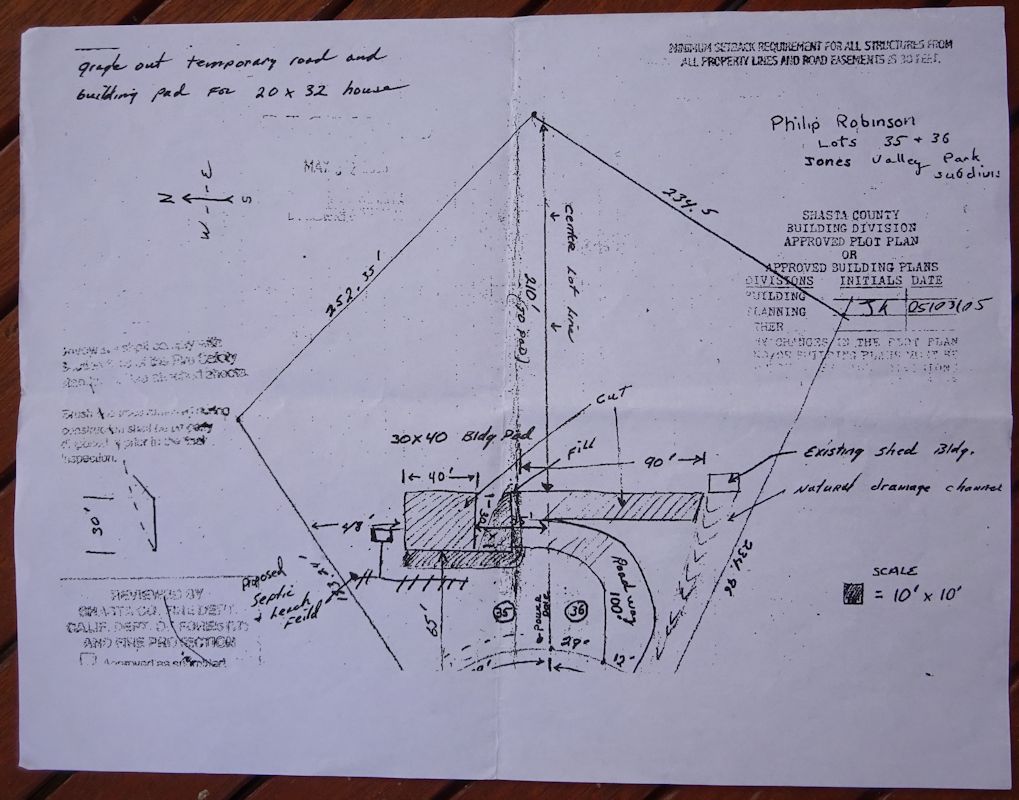 grade out temporary road and
building pad for 20 x 32 house
MINIMUM SETBACK REQUIREMENT FOR ALL STRUCTURES FROM
ALL PROPERTY LINES AND ROAD EASEMENTS IS 30 FEET.
Philip Robinson
Lots 35 + 36
Jones Valley Park
subdivis
N
E
S
W
MAY
234.5
SHASTA COUNTY
BUILDING DIVISION
APPROVED PLOT PLAN
OR
APPROVED BUILDING PLANS
DIVISIONS INITIALS DATE
BUILDING
PLANNING JK 05/03/05
THER
NY CHANGES IN THE PLOT PLAN
252.35'
center Lot Line
210'
(TO PAD)
construction shall be
prior to the final
inspection.
cut
30X40 Bldg Pad
Fill
40'
90'
Existing shed Bldg.
Natural drainage channel
30'
48'
Proposed
Septic
Leach
Feild
65'
35
36
Power
Pole
Road way
100'
28'
12'
234.96
SCALE
= 10' x 10'
REVIEWED BY
SHASTA CO. FIRE DEPT.
CALIF. DEPT. OF FORESTRY
AND FIRE PROTECTION
Approved as submitted